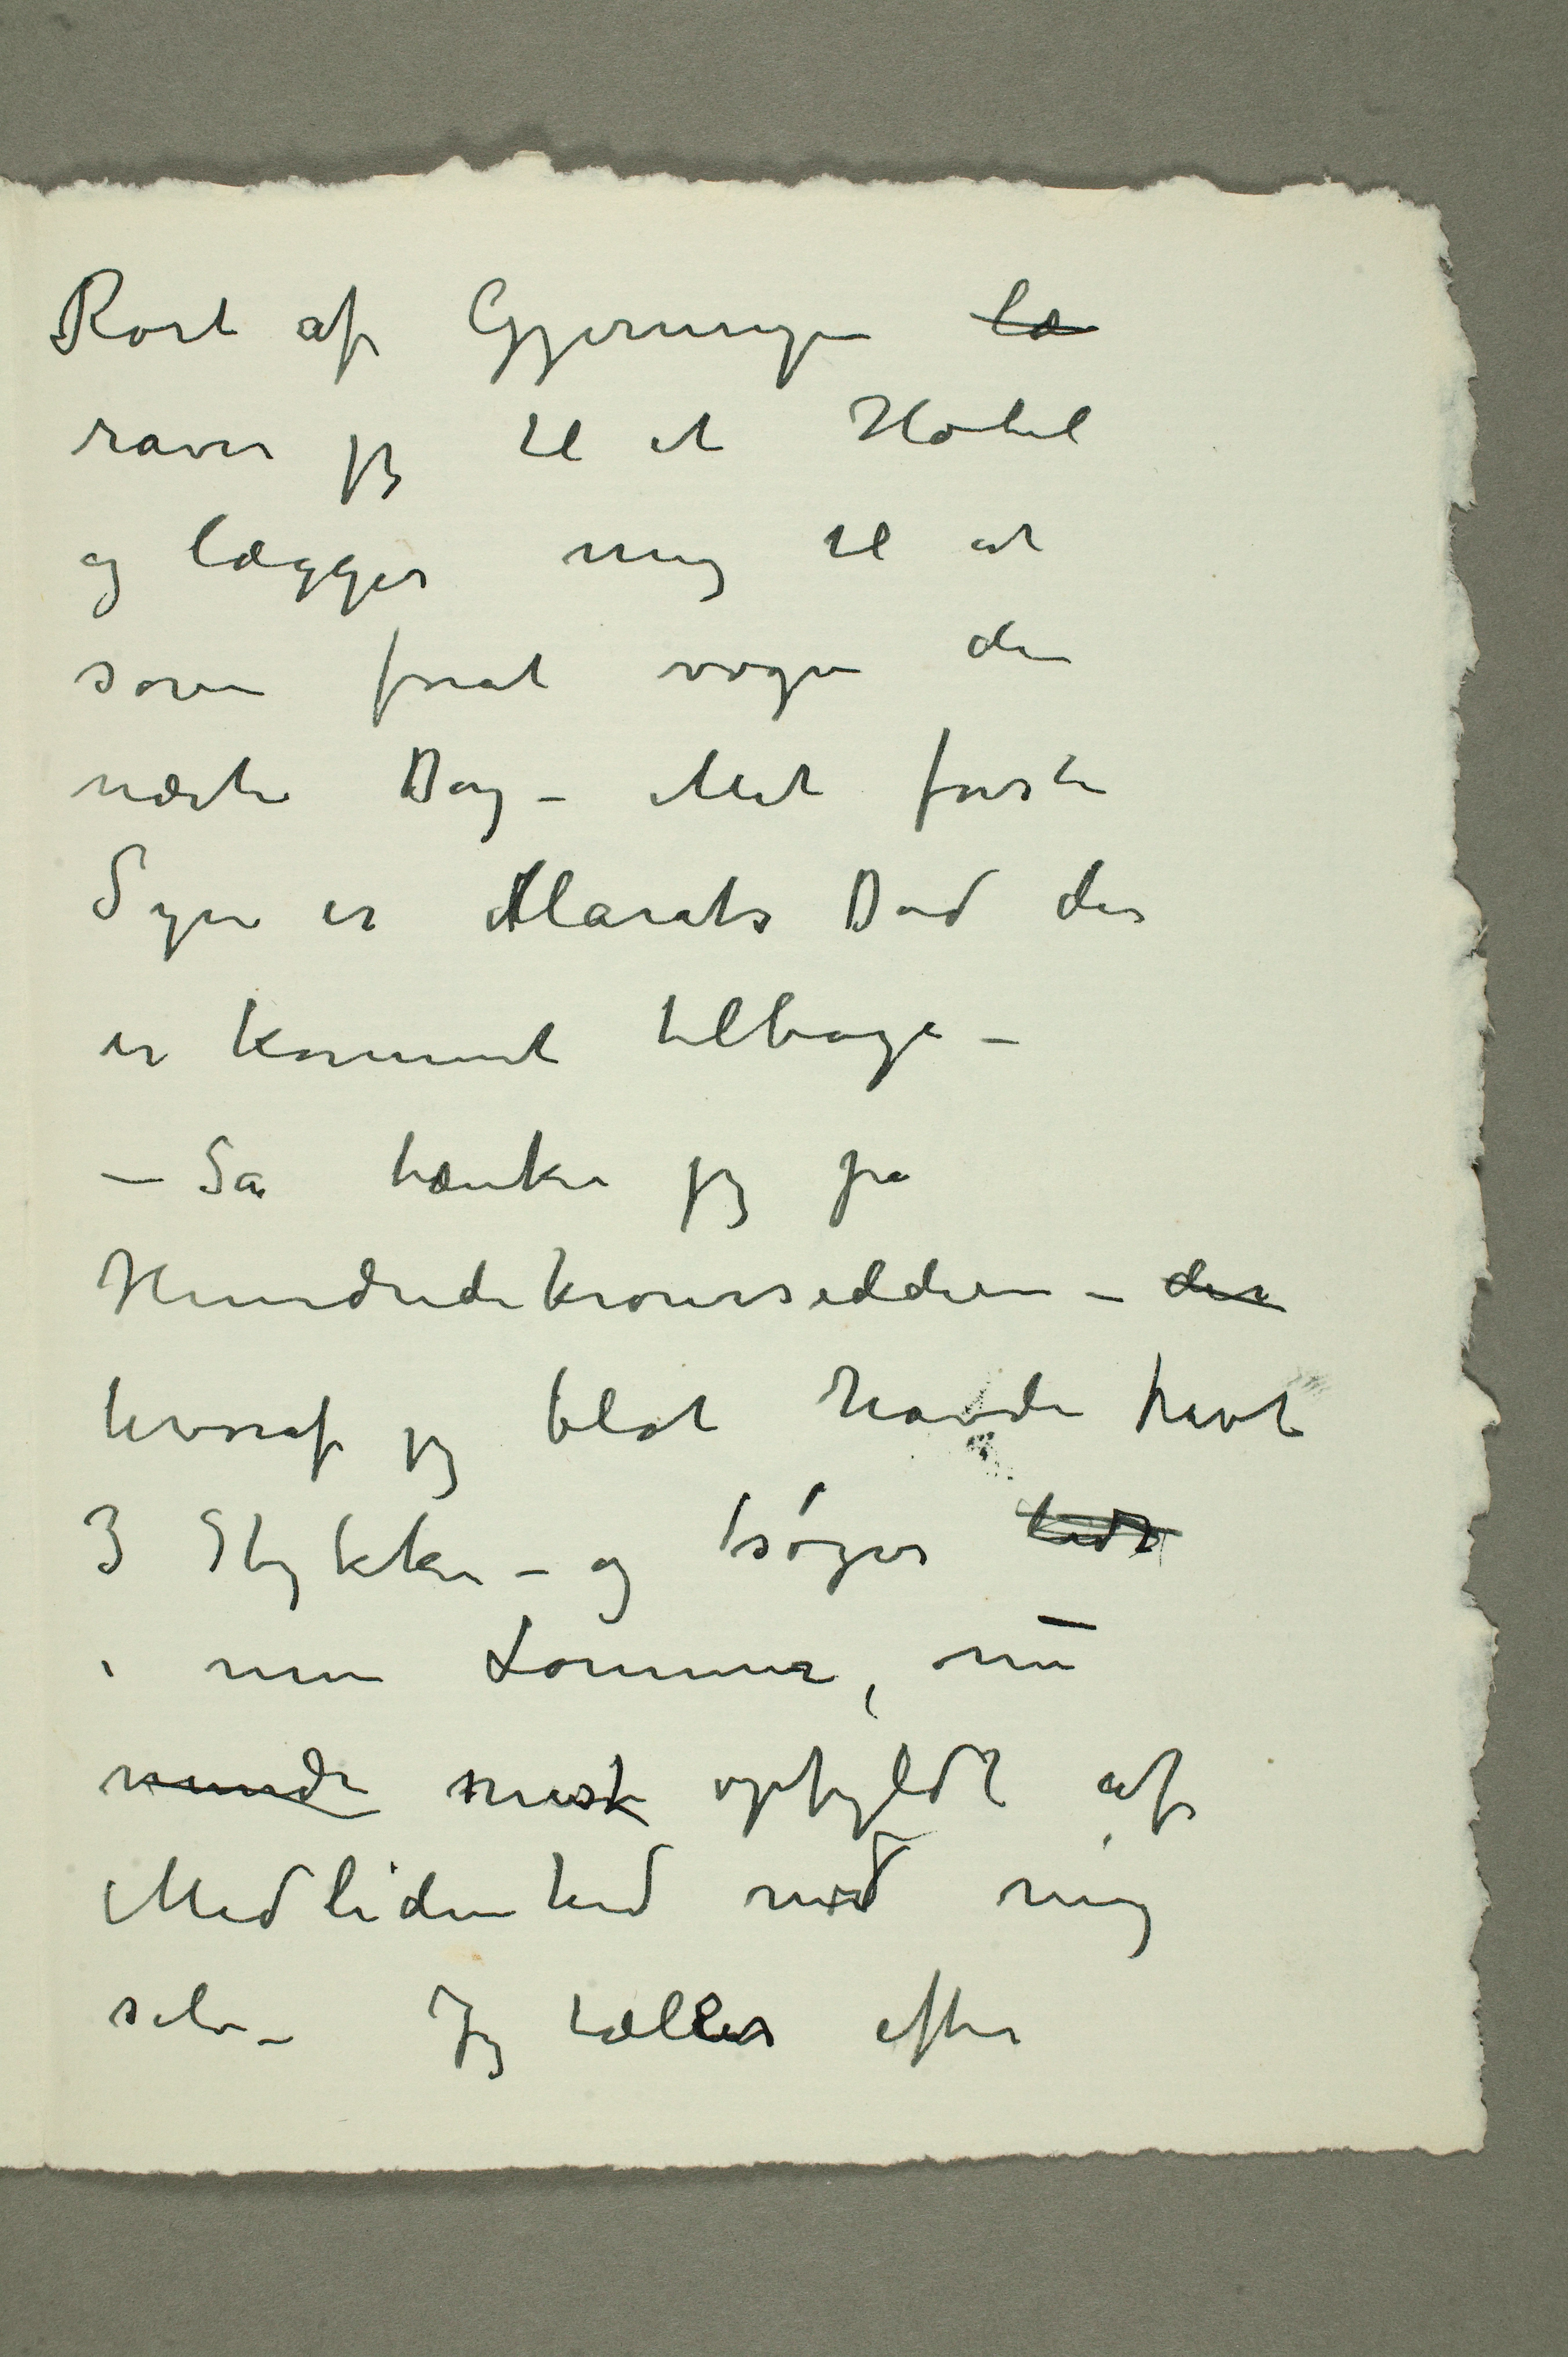 Rørt af Gjerningen læ
raver jeg til et Hotel
og lægger mig til at
sove forat vogne den
næste Dag – Mit første
Syn er Marats Død der
er kommet tilbage –
– Så tænker jeg på
Hundredekronersedlerne – der
hvoraf jeg blot havde havt
3 Stykker – og søger
i mine Lommer,
mindre mest opfyldt af
Medlidenhed med mig
selv – Jeg tæller efter